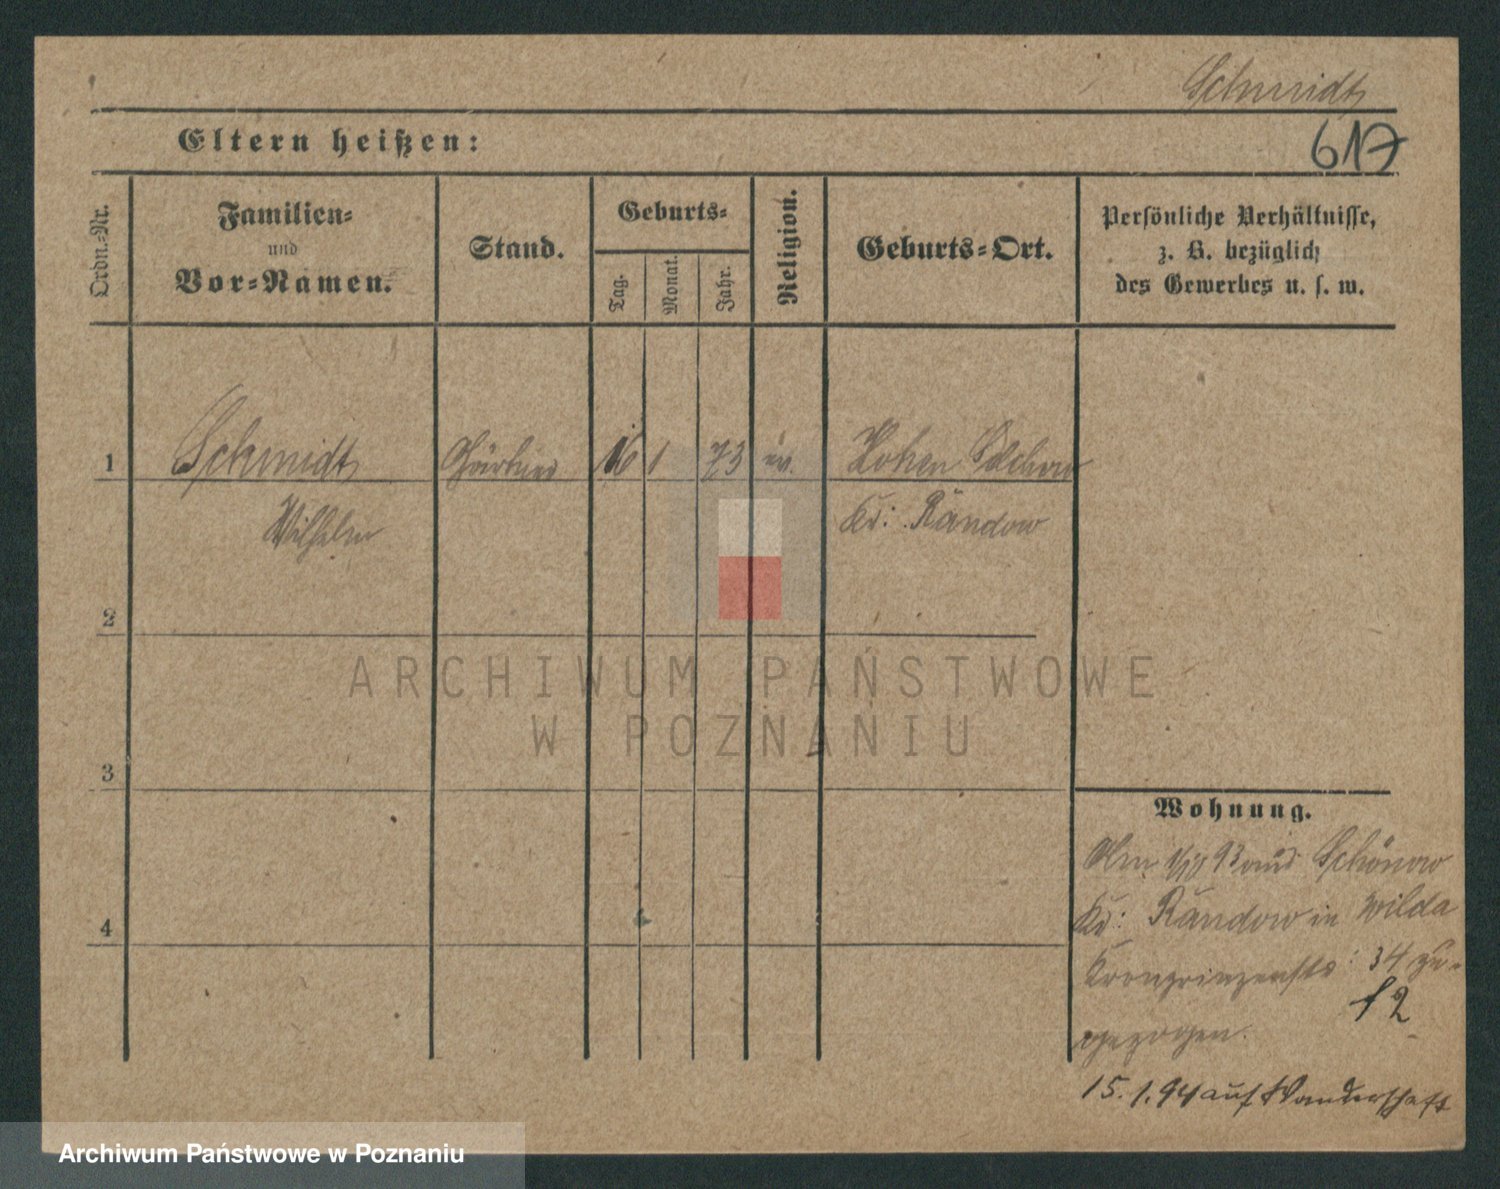 Schmidt
617
Eltern heißen:
Ordn.-Nr.
Familien-
und
Vor-Namen.
Stand.
Geburts-
Tag.
Monat.
Jahr.
Religion.
Geburts-Ort.
Persönliche Verhältnisse,
z. B. bezüglich
des Gewerbes u. s. w.
1 Schmidt Gärtner 16 1 73 ev. Hohen Selchow
Wilhelm Kr: Randow
2
3
4
Wohnung.
Am 1/10 93 aus Schönow
Kr: Randow in Wilda
Kronprinzenstr: 34 zu-
gezogen.
15. 1. 94 auf Wanderschaft
ARCHIWUM PAŃSTWOWE
W POZNANIU
Archiwum Państwowe w Poznaniu